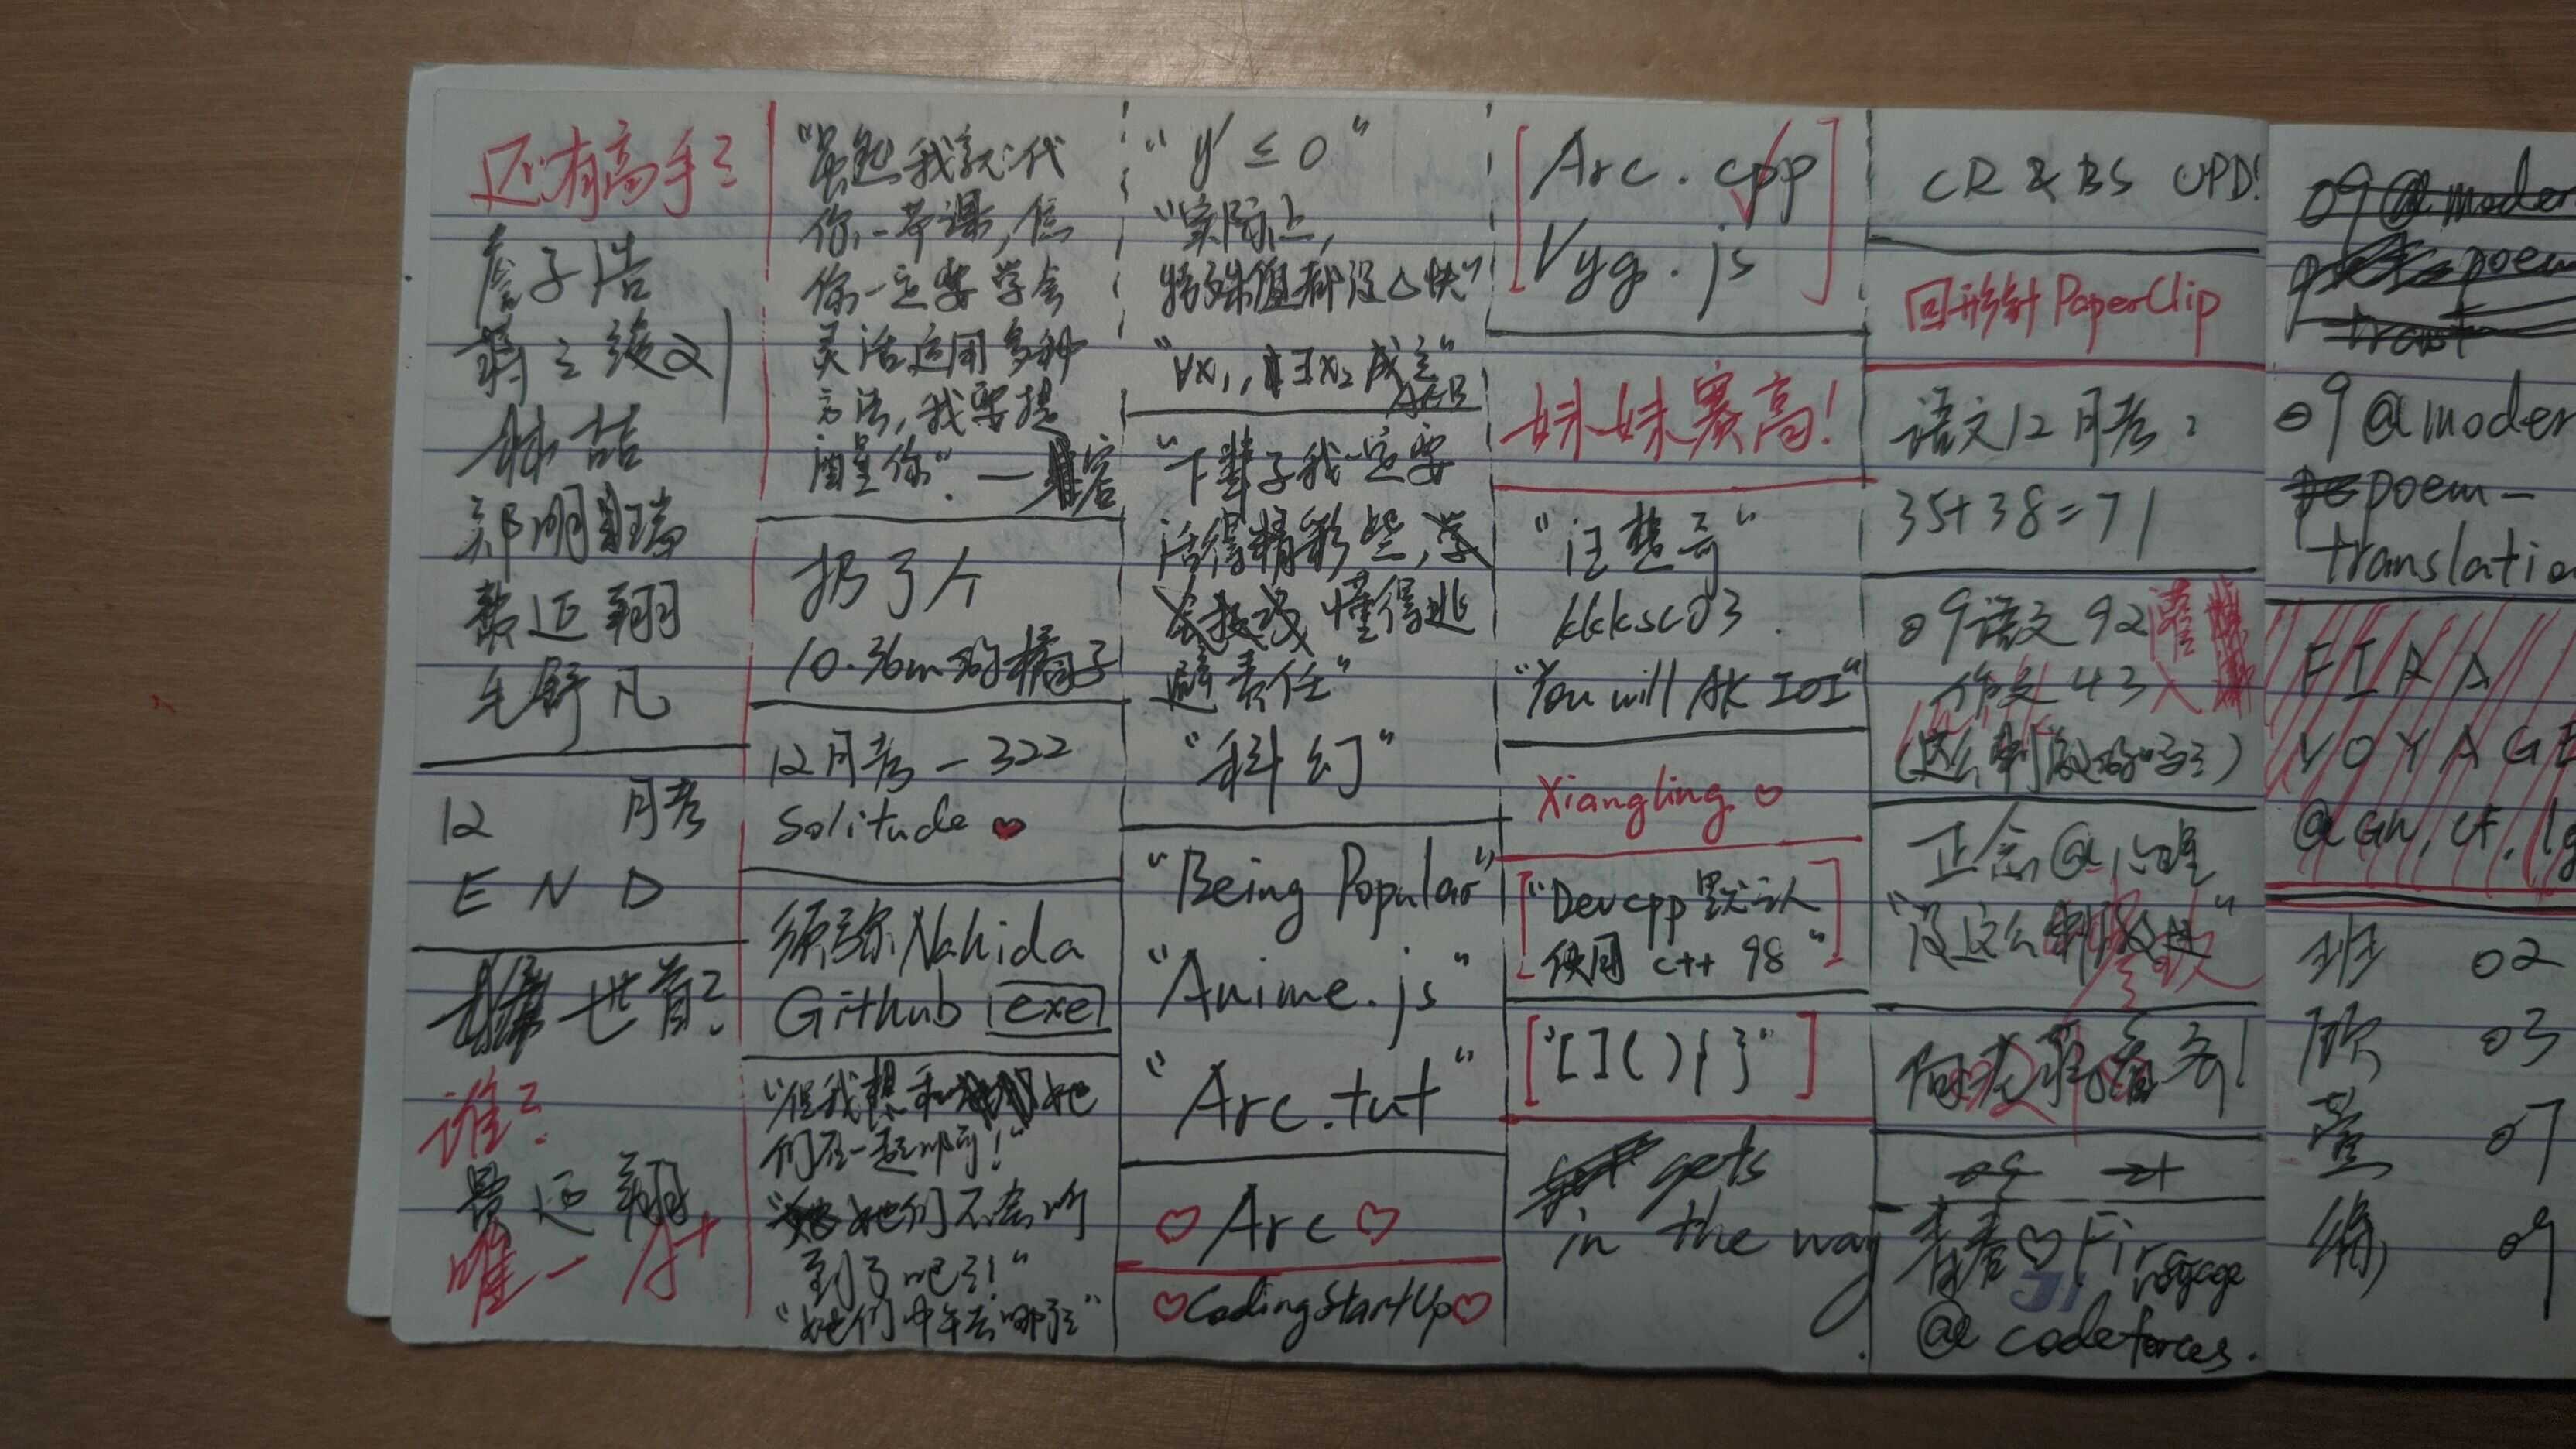 还有高手?
詹子浩
蒋
林喆
郑明瑞
迈翔
毛舒凡
12 月考
E N D
世首?
谁?
迈翔
唯一 A+
"虽然我就代
你一节课,但
你一定要学会
灵活运用多种
方法,我要提
醒你". —
扔了个
10.36m的橘子
12月考-322
Solitude
须弥Nahida
Github exe
"但我想和她
们在一起啊!"
她们不会听
到了吧?!"
"她们中午去哪了?"
"y' ≤ 0"
"实际上,
特殊值都没△快"
"∀x₁, ∃x₂ 成立"
"下辈子我一定要
活得精彩些,
懂得逃
避责任"
"科幻"
"Being Popular"
"Anime.js"
"Arc.tut"
♡Arc♡
♡CodingStartUp♡
Arc.cpp
Vyg.js
妹妹赛高!
"汪楚奇"
kkksc03.
"You will AK IOI"
Xiangling ♡
["Devcpp默认
使用 c++ 98"]
["[](){}"]
gets
in the way
CR & BS UPD!
回形针PaperClip
语文12月考:
35+38=71
09语文92
作文43
(这么刺激的吗?)
正念@心理
"没这么刺激
09 21
@codeforces.
09@moder
09@moder
poem-
translatio
FIRA
VOYAGE
@GH, CF, lg
班 02
欣 03
07
09